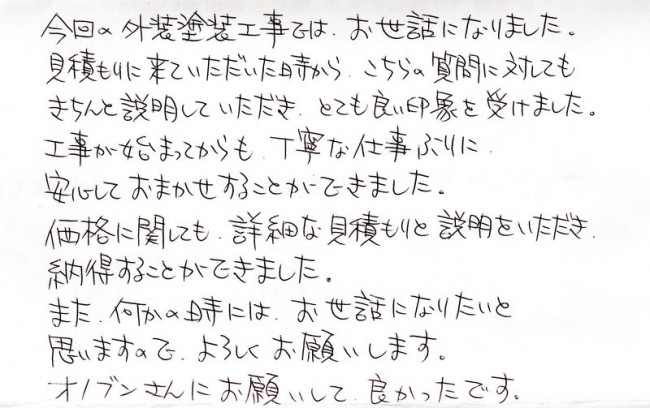 今回の外装塗装工事では、お世話になりました。
見積もりに来ていただいた時から、こちらの質問に対しても
きちんと説明していただき、とても良い印象を受けました。
工事が始まってからも、丁寧な仕事ぶりに、
安心しておまかせすることができました。
価格に関しても、詳細な見積もりと説明をいただき、
納得することができました。
また、何かの時には、お世話になりたいと
思いますので、よろしくお願いします。
オノブンさんにお願いして、良かったです。